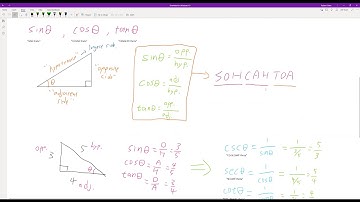 sinθ , cosθ , tanθ
"hypotenuse" → largest side
"opposite side"
θ
"adjacent side"
sinθ = opp. / hyp.
cosθ = adj / hyp.
tanθ = opp / adj.
SOHCAHTOA
opp. 3
5 hyp.
4 adj.
θ
sinθ = O/H = 3/5
cosθ = A/H = 4/5
tanθ = O/A = 3/4
cscθ = 1/sinθ = 1/(3/5) = 5/3
secθ = 1/cosθ = 1/(4/5) = 5/4
cotθ = 1 = 1 = 4